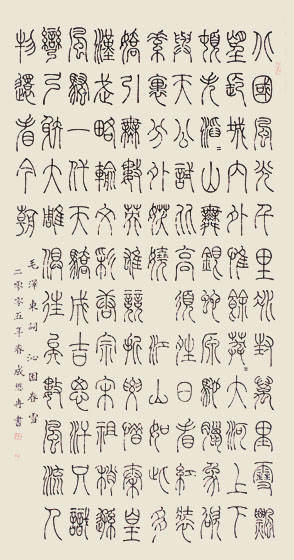 北國風光千里冰封萬里雪飄
望長城內外惟餘莽〻大河上下
頓失滔〻山舞銀蛇原馳臘象欲
與天公試比高須晴日看紅裝
素裹分外妖嬈 江山如此多
嬌引無數英雄競折腰惜秦皇
漢武略輸文彩唐宗宋祖稍遜
風騷一代天驕成吉思汗只識
彎弓射大雕俱往矣數風流人
物還看今朝
毛澤東詞 沁園春雪
二零零五年春 書